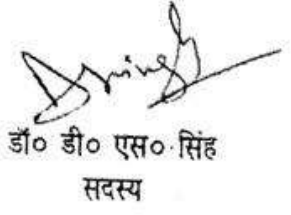 डॉ० डी० एस० सिंह
सदस्य